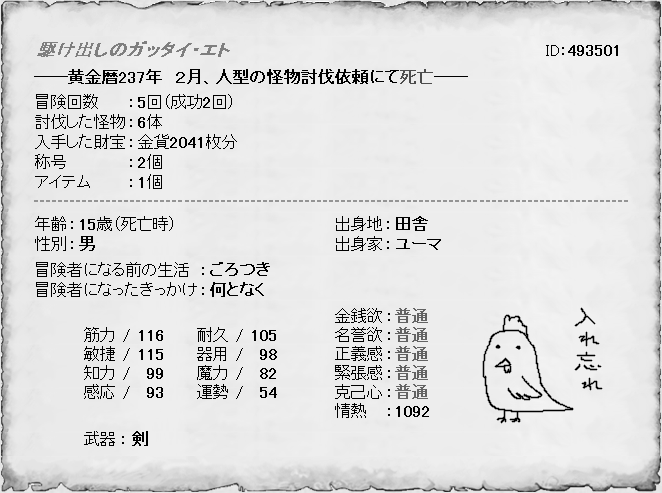 駆け出しのガッタイ・エト
ID:493501
――黄金暦237年　2月、人型の怪物討伐依頼にて死亡――
冒険回数　：5回(成功2回)
討伐した怪物：6体
入手した財宝：金貨2041枚分
称号　：2個
アイテム　：1個
年齢：15歳(死亡時)
出身地：田舎
性別：男
出身家：ユーマ
冒険者になる前の生活 ：ごろつき
冒険者になったきっかけ：何となく
金銭欲：普通
名誉欲：普通
正義感：普通
緊張感：普通
克己心：普通
情熱　：1092
筋力 / 116　耐久 / 105
敏捷 / 115　器用 / 98
知力 / 99　魔力 / 82
感応 / 93　運勢 / 54
武器：剣
入れ忘れ